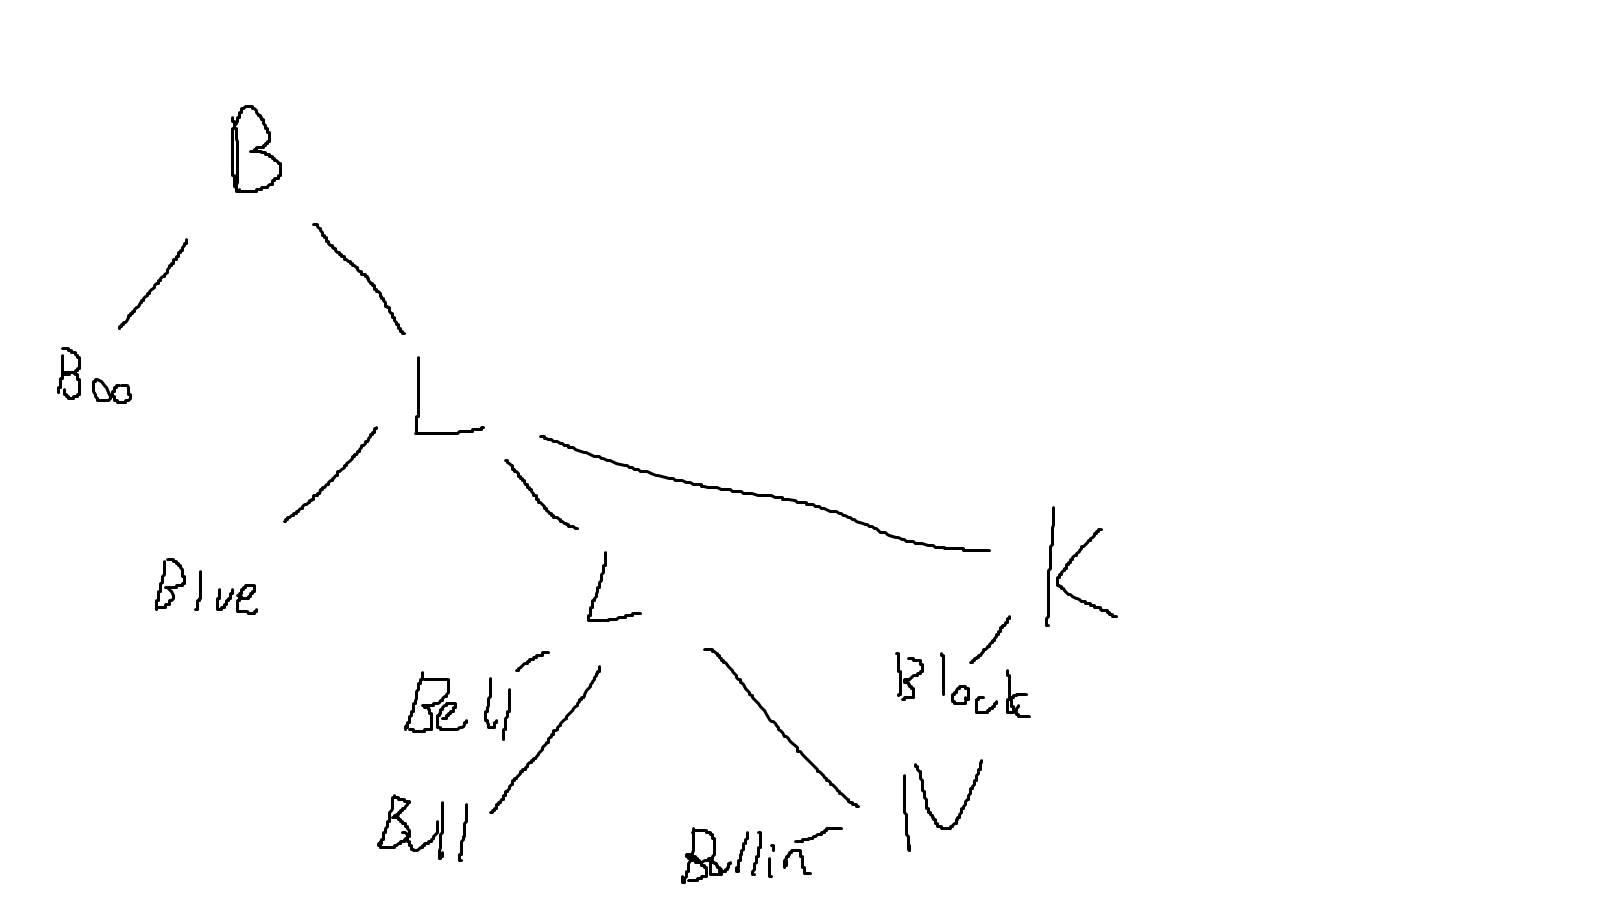 B
Boo
L
Blue
L
K
Bell
Block
Bull
Bullin
N